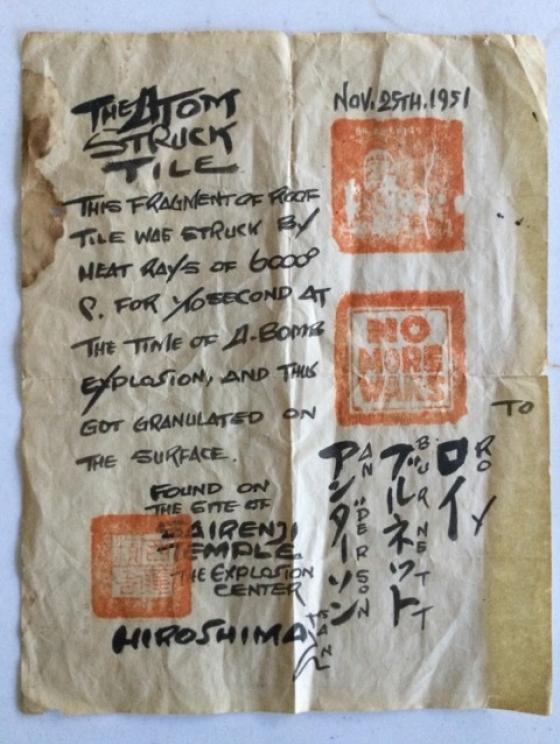 THE ATOM
STRUCK
TILE
THIS FRAGMENT OF ROOF
TILE WAS STRUCK BY
HEAT RAYS OF 6000°
C. FOR 1/10 SECOND AT
THE TIME OF A-BOMB
EXPLOSION, AND THUS
GOT GRANULATED ON
THE SURFACE.
FOUND ON
THE SITE OF
SAIRENJI
TEMPLE.
THE EXPLOSION
CENTER
HIROSHIMA
NOV. 25TH. 1951
NO
MORE
WARS
TO
ロイ
ROY
ブルネット
BURNETT
アンダーソン
ANDERSON
SAN